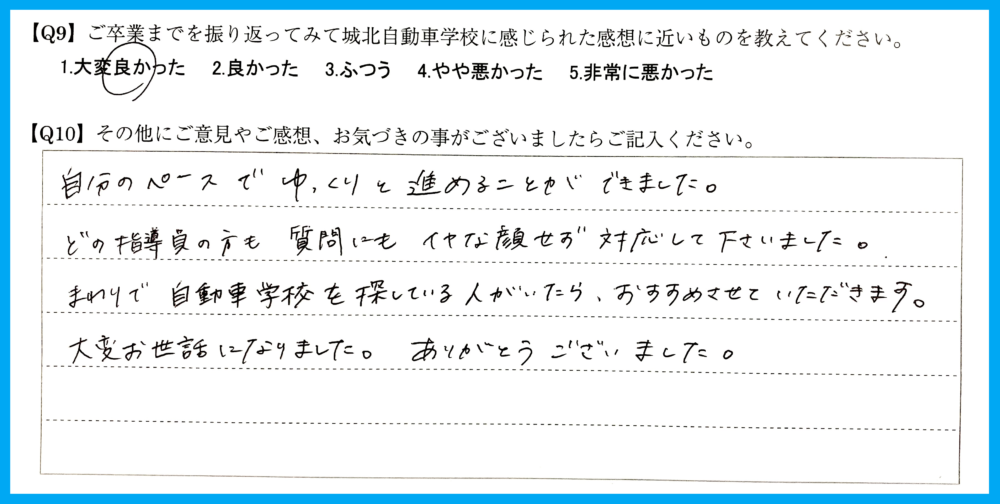 【Q9】ご卒業までを振り返ってみて城北自動車学校に感じられた感想に近いものを教えてください。
1.大変良かった 2.良かった 3.ふつう 4.やや悪かった 5.非常に悪かった
【Q10】その他にご意見やご感想、お気づきの事がございましたらご記入ください。
自分のペースでゆっくりと進めることができました。
どの指導員の方も 質問にも イヤな顔せず 対応して下さいました。
まわりで 自動車学校を探している人がいたら、おすすめさせていただきます。
大変お世話になりました。 ありがとうございました。